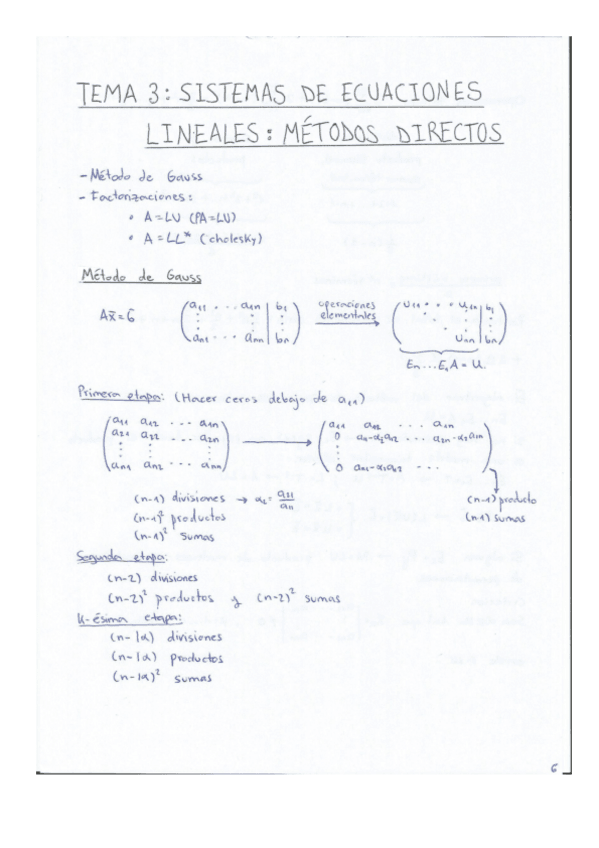 TEMA 3: SISTEMAS DE ECUACIONES
LINEALES: MÉTODOS DIRECTOS
- Método de Gauss
- Factorizaciones:
• A = LU (PA=LU)
• A = LL* (cholesky)
Método de Gauss
Ax̄ = b̄ (a11 ... a1n | b1 ⋮ ⋮ | ⋮ an1 ... ann | bn) operaciones elementales → (u11 ... u1n | b1 ⋮ | ⋮ unn | bn)
En...E1A = U.
Primera etapa: (Hacer ceros debajo de a11)
(a11 a12 ... a1n → (a11 a12 ... a1n
a21 a22 ... a2n 0 a22-α2a12 ... a2n-α2a1n
⋮ ⋮ ⋮ ⋮ ⋮
an1 an2 ... ann) 0 an2-α1a12 ... )
(n-1) divisiones → αi = a11/a11 (n-1) producto
(n-1)² productos (n-1) sumas
(n-1)² sumas
Segunda etapa:
(n-2) divisiones
(n-2)² productos y (n-2)² sumas
K-ésima etapa:
(n-k) divisiones
(n-k) productos
(n-k)² sumas
6